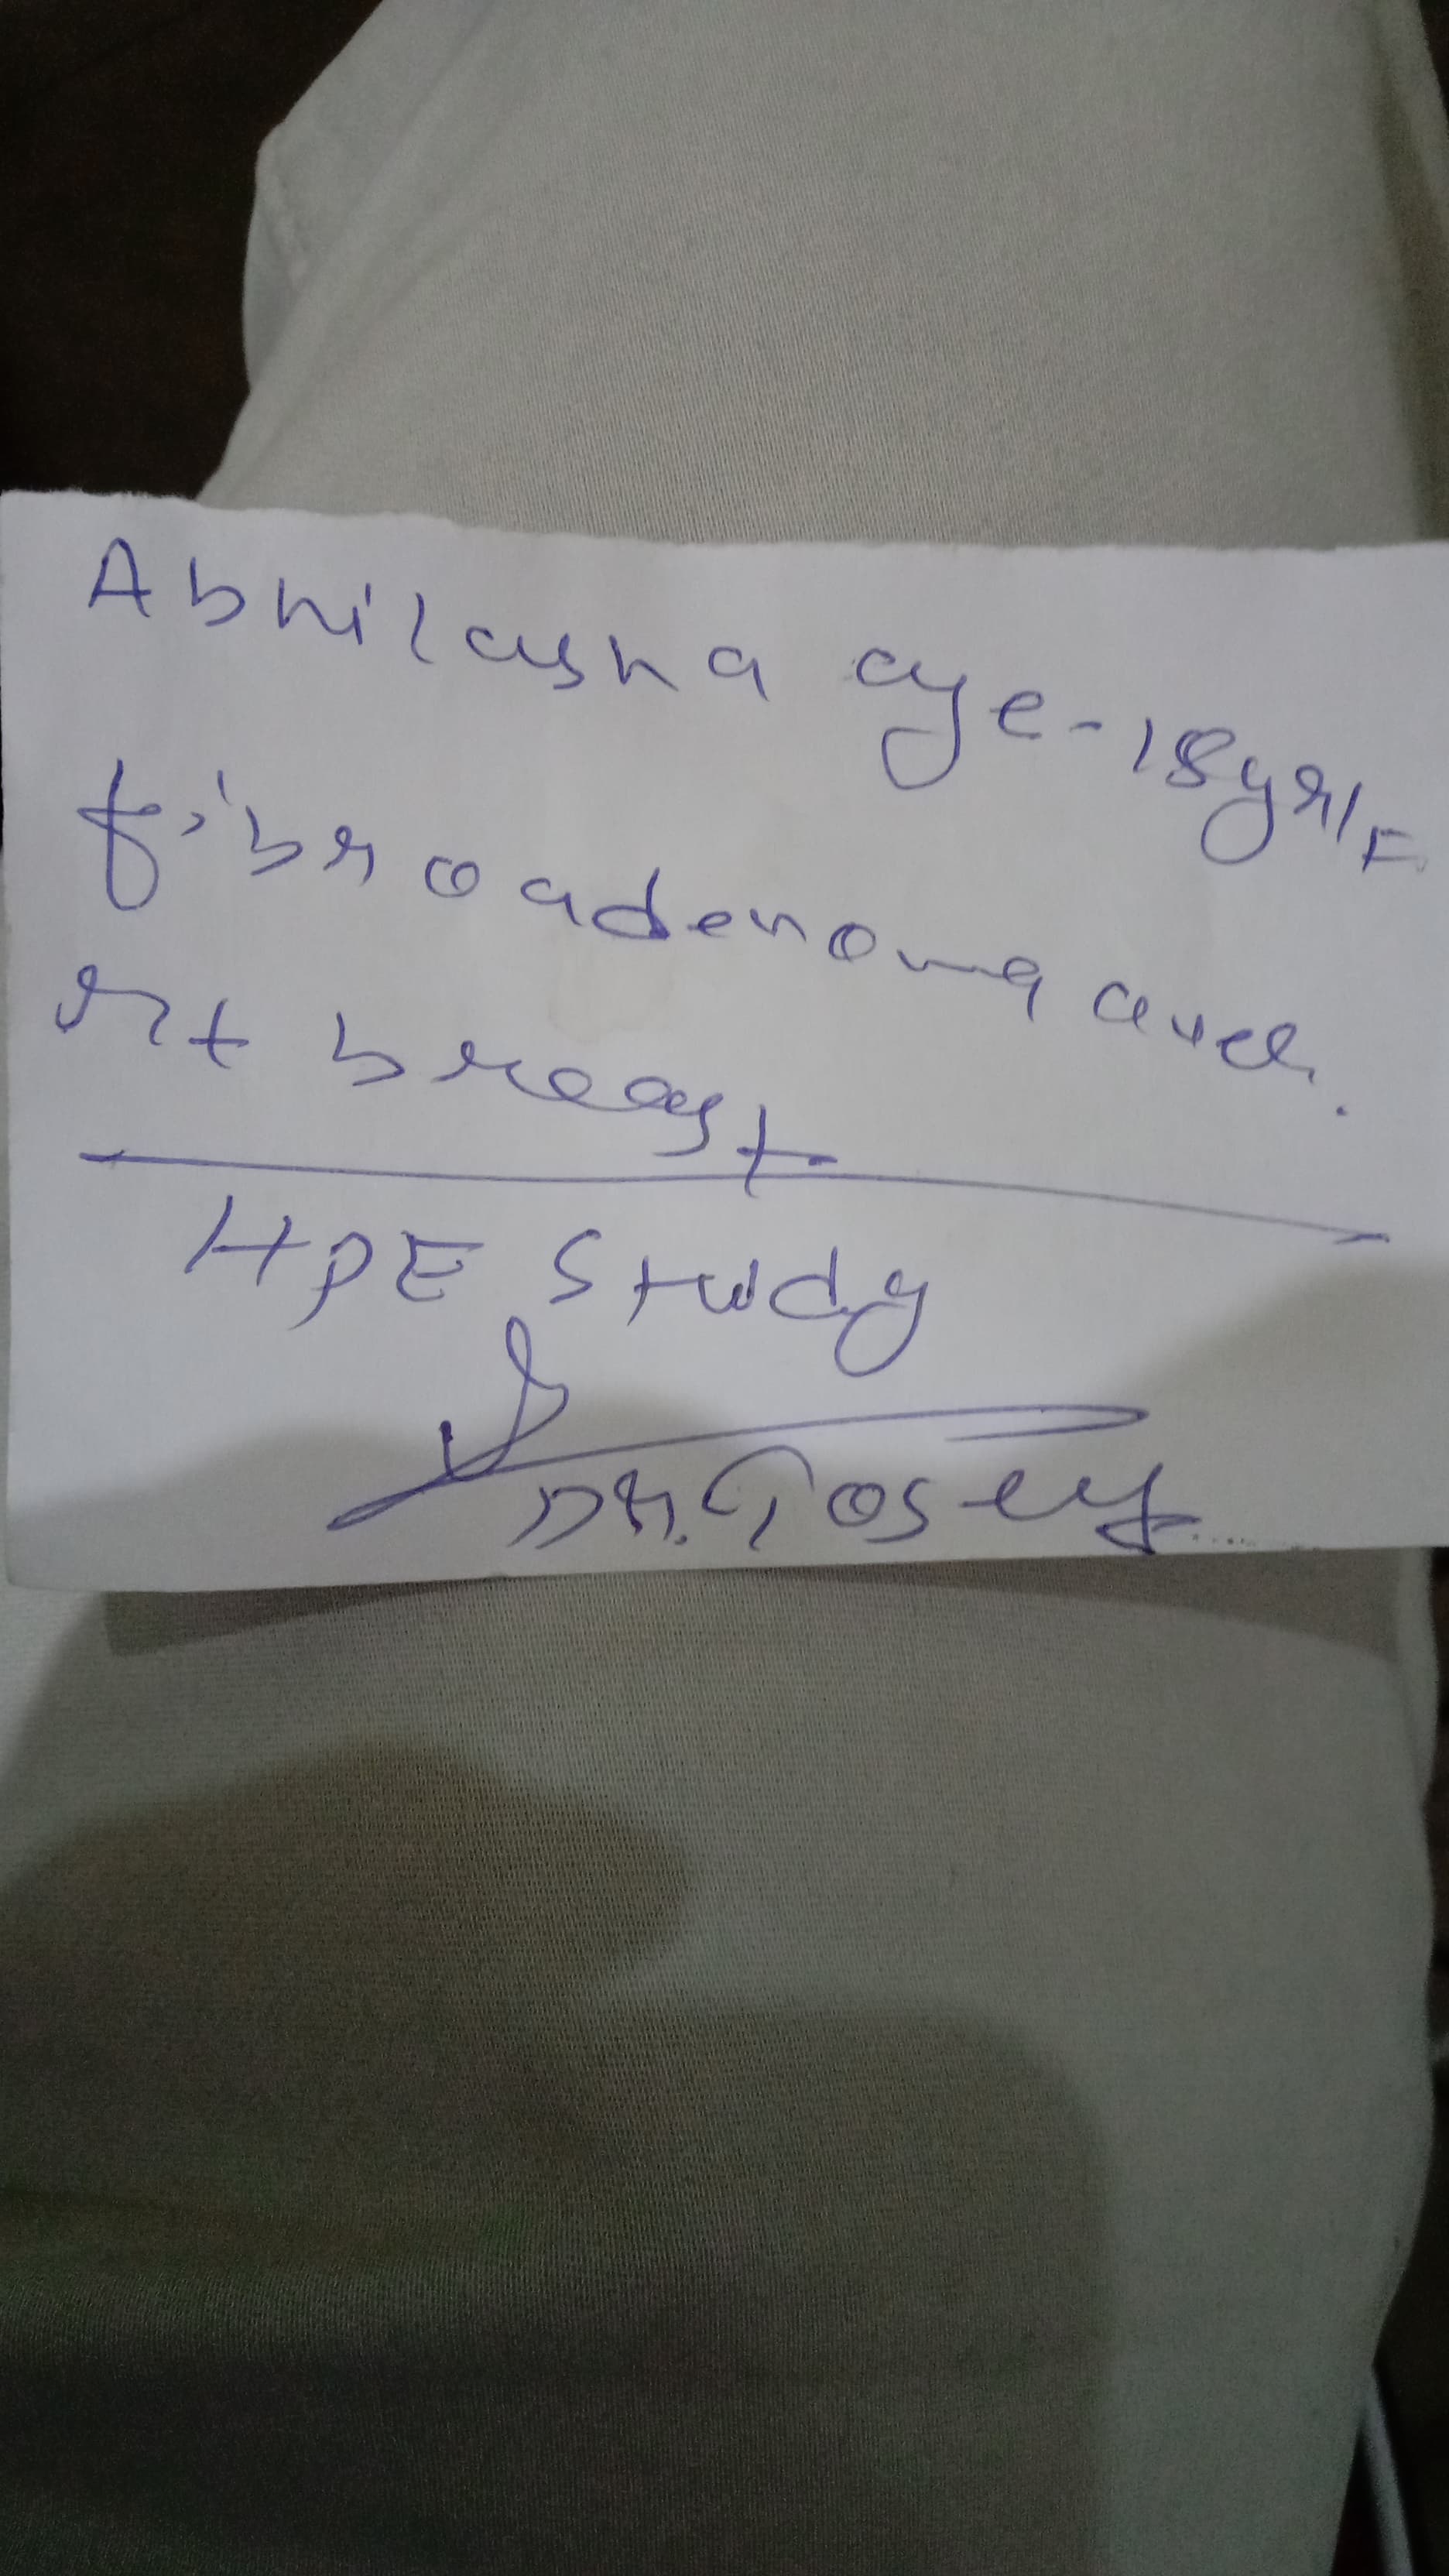 Abhilasha age-18yr/F
fibroadenoma
rt breast
HPE Study